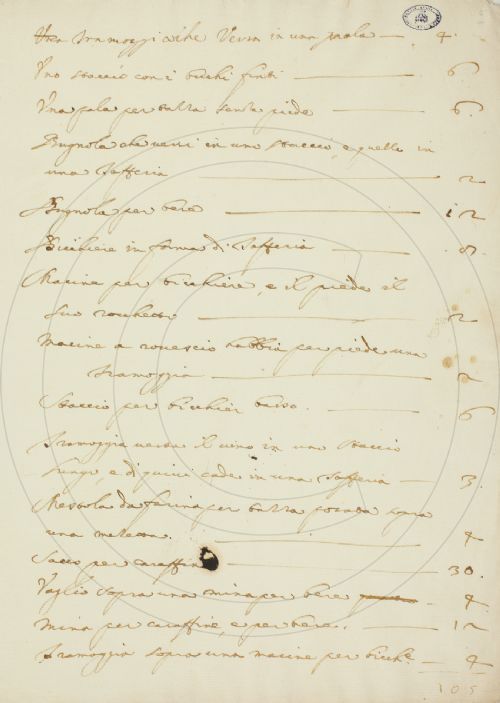 Una tramoggi che Versa in una pala — 4.
Uno staccio con i buchi finti — 6
Una pala per tazza senza piede — 6.
Bugnola che versi in uno staccio, e quello in
una Tafferia — 2
Bugnola per bere — 12
Bicchiere in forma di Tafferia — 8.
Macine per bicchiere, e il piede il
suo rocchetto — 2
Macine a rovescio habbia per piede una
tramoggia — 2
Staccio per bicchier basso. — 6
Tramoggia versa il vino in uno staccio
lungo, e di quivi cade in una Tafferia — 3.
Mestola da farina per tazza posata sopra
una — 4
Sacco per caraffina — 30.
Vaglio sopra una mina per bere — 4
Mina per caraffine, e per bere. — 12
Tramoggia sopra una macine per bicche — 4
105